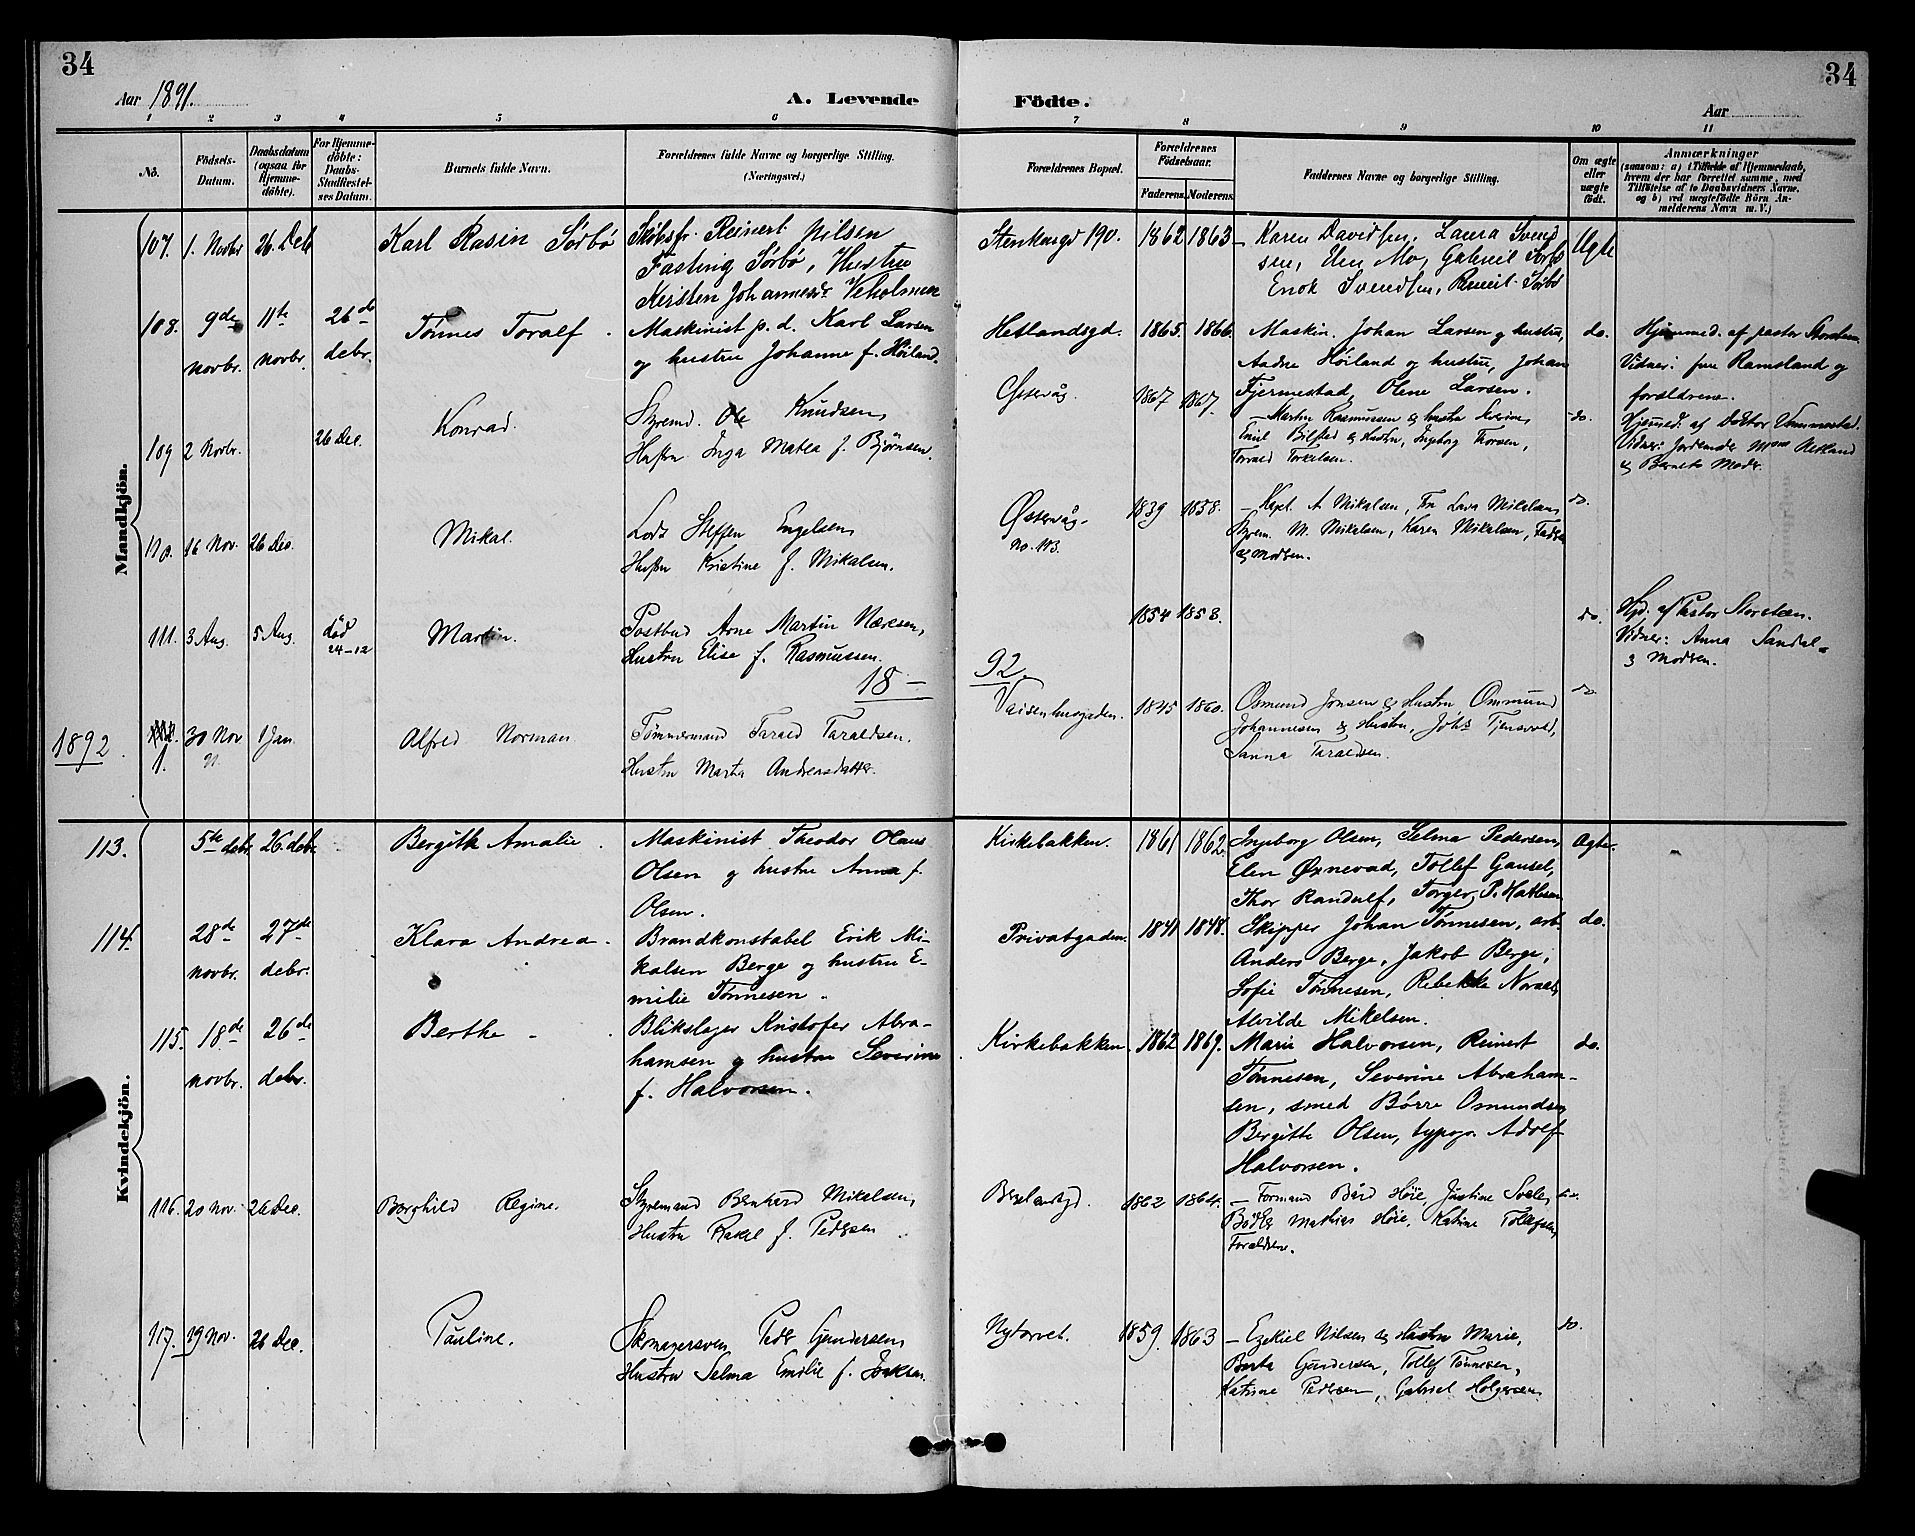 34
34
Aar 1891.
A. Levende
Födte.
Aar
1 2 3 4 5 6 7 8 9 10 11
No.
Födsels-
Datum.
Daabsdatum
(ogsaa for
Hjemme-
döbte).
For Hjemme-
döbte:
Daabs-
Stadfæstel-
ses Datum.
Barnets fulde Navn.
Forældrenes fulde Navne og borgerlige Stilling.
(Næringsvei.)
Forældrenes Bopæl.
Forældrenes
Födselsaar.
Faderens. Moderens.
Faddernes Navne og borgerlige Stilling.
Om ægte
eller
uægte
födt.
Anmærkninger
(saasom: a) i Tilfælde af Hjemmedaab,
hvem der har forrettet samme, med
Tilföielse af to Daabsvidners Navne.
og b) ved uægtefödte Börn An-
melderens Navn m. V.)
Mandkjön.
107. 1. Novbr 26 Deb Karl Rasin Sörbö
Skibsfr. Reinert Nilsen
Fasting Sörbö, Hustru
Kirsten Johannesdr Veholmen
190. 1862 1863
Karen Davidsen, Laura Svend
sen, Elen Mo, Gabriel
Enok Svendsen, Reinert Sörbö
Ægte
108. 9de novbr. 11te novbr. 26de debr. Tönnes Toralf.
Maskinist p. d. Karl Larsen
og hustru Johanne f. Höiland.
Hetlandsgd. 1865. 1866.
Maskin. Johan Larsen og hustru,
Aadne Höiland og hustru, Johan
Fjermestad, Olene Larsen.
do.
Hjemmed. af pastor
Vidner: fru Ramsland og
forældrene.
109 2 Novbr. 26 Dec. Konrad.
Styrmd. Ole Knudsen,
Hustru Inga Matea f. Bjørnsen.
Østervåg. 1867 1867.
Martin Rasmussen og hustru
Emil Bilsted og Hustru, Ingeborg Thorsen,
Torvald Torkelsen.
do.
Hjemmed. af Doktor
Vidner: Jordemoder
og Barnets Moder.
110. 16 Nov. 26 Dec. Mikal.
Lods Steffen Engelsen,
Hustru Kristine f. Mikalsen.
Østervåg.
No. 113.
1839 1858.
Kapt. A Mikalsen, Fru Lava Mikalsen
Styrm. M. Mikalsen, Karen Mikalsen, Faderen
og Moderen.
do.
111. 3 Aug. 5 Aug. död
24-12
Martin.
Postbud Arne Martin Næresen,
Hustru Elise f. Rasmussen.
1854 1858.
do.
Hjd. af Pastor
Vidner: Anna Sandal
og Moderen.
18—
92
1892.
1. 30 Nov
91.
1 Jan. Alfred Norman
Tömmermand Tarald Taraldsen.
Hustru Marta Andreasdatter.
Vaisenhusgaden. 1845 1860.
Osmund Jonsen og Hustru, Ommund
Johannesen og Hustru, Johs
Sanna Taraldsen.
do
Kvindekjön.
113. 5te debr. 26. debr. Bergithe Amalie.
Maskinist Theodor Olaus
Olsen og hustru Anna f.
Olsen.
Kirkebakken. 1861 1862.
Ingeborg Olsen, Selma Pedersen,
Elen Ørnevad, Tollef Gausel,
Thor Randulf, Torger P.
Ægte.
114. 28de novbr. 27de debr. Klara Andrea.
Brandkonstabel Erik Mi-
kalsen Berge og hustru E-
milie Tönnesen.
Privatgaden. 1841 1848.
Skipper Johan Tönnesen, arb.
Anders Berge, Jakob Berge,
Sofie Tönnesen, Rebekke
Alvilde Mikelsen.
do.
115. 18de novbr. 26de debr. Berthe
Blikslager Kristofer Abra-
hamsen og hustru Severine
f. Halvorsen.
Kirkebakken. 1862 1869.
Marie Halvorsen, Reinert
Tönnesen, Severine Abraham-
sen, smed Börre Omundsen,
Bergithe Olsen, typogr. Adolf
Halvorsen.
do.
116. 20 Nov. 26 Dec. Borghild Regine.
Styrmand Bernhard Mikalsen,
Hustru Rakel f. Pedersen
1862 1864.
Formand Bård Höie, Justine Svele,
Mathias Höie, Katrine Tollefsen,
Forældrene.
117. 19 Nov. 26 Dec. Pauline.
Skomagersvend Peder Gundersen,
Hustru Selma Emilie f.
Nytorvet. 1859. 1863
Ezekiel Nilsen og Hustru Marie,
Berta Gundersen, Tollef Tönnesen,
Katrine Pedersen, Gabriel Holgersen
do.